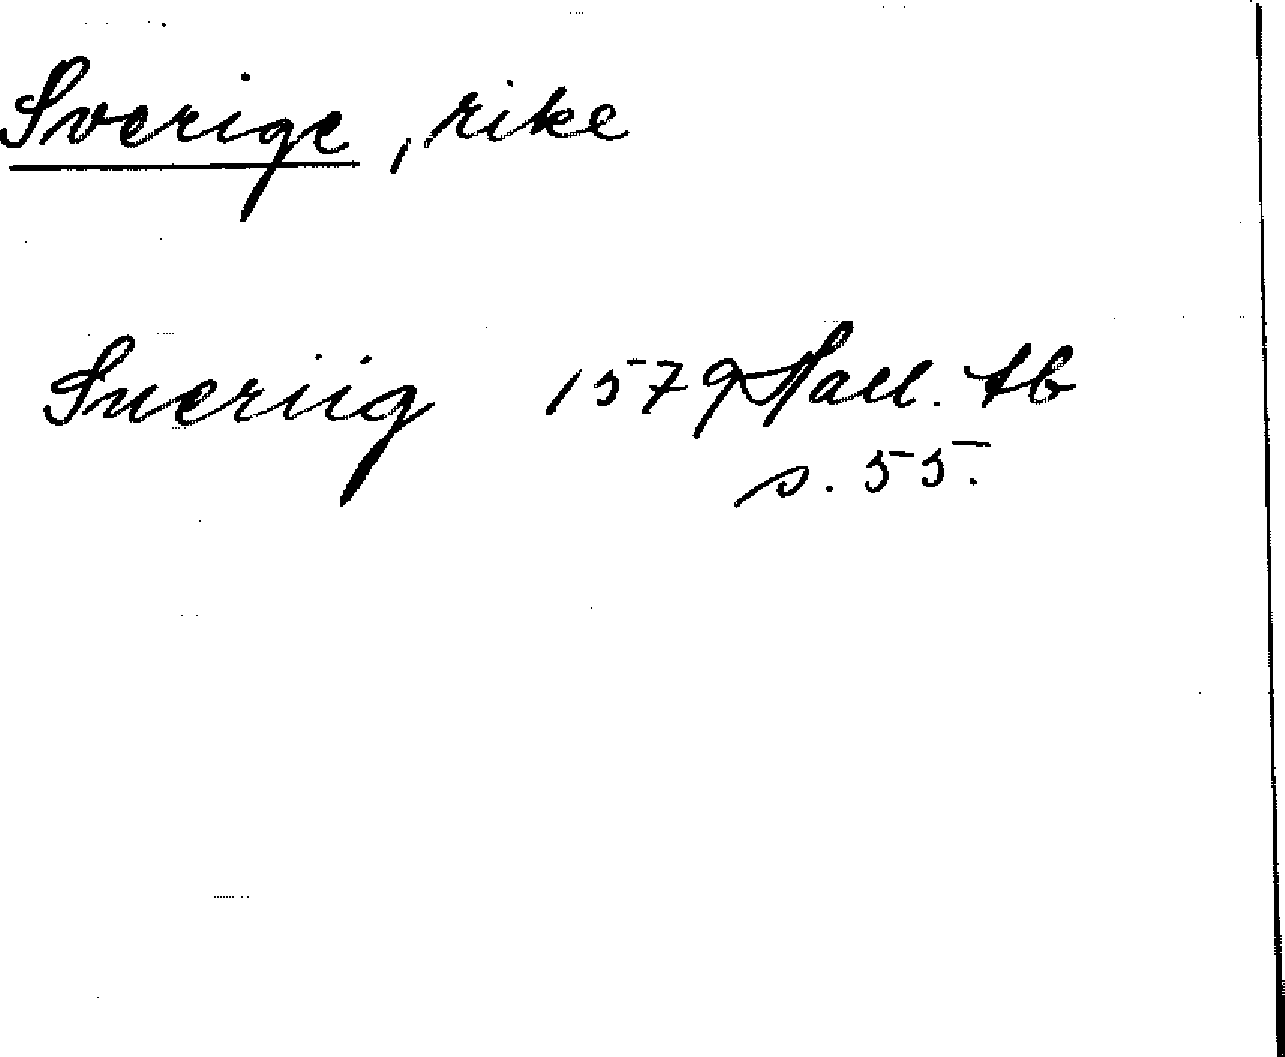 Sverige, rike
Sueriig 1579 Hall. tb
s. 55.